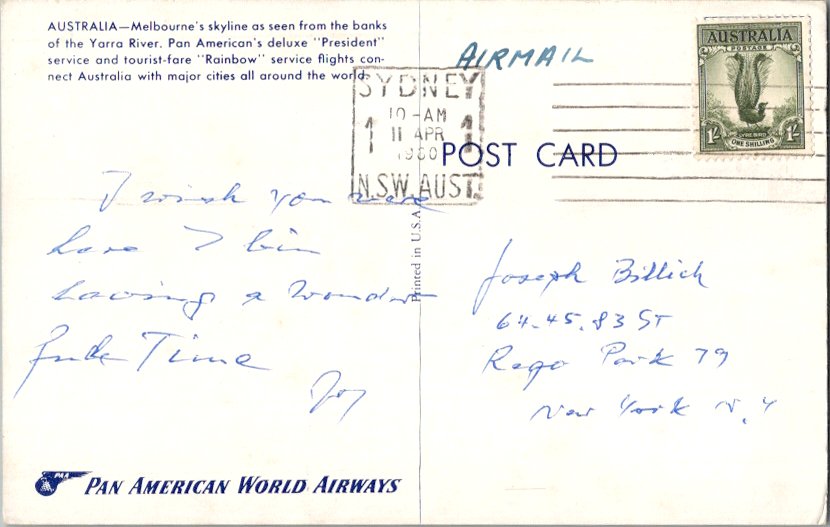 AUSTRALIA—Melbourne's skyline as seen from the banks
of the Yarra River. Pan American's deluxe "President"
service and tourist-fare "Rainbow" service flights con-
nect Australia with major cities all around the world.
AIRMAIL
AUSTRALIA
POSTAGE
1/-
LYREBIRD
1/-
ONE SHILLING
SYDNEY
10-AM
1 11 APR 1
1960
N.S.W. AUST.
POST CARD
I wish you were
here I
having a wonder
Time
Joy
Printed in U.S.A.
Joseph Billich
64-45.83 ST
Rego Park 79
New York N.Y
PAA
PAN AMERICAN WORLD AIRWAYS